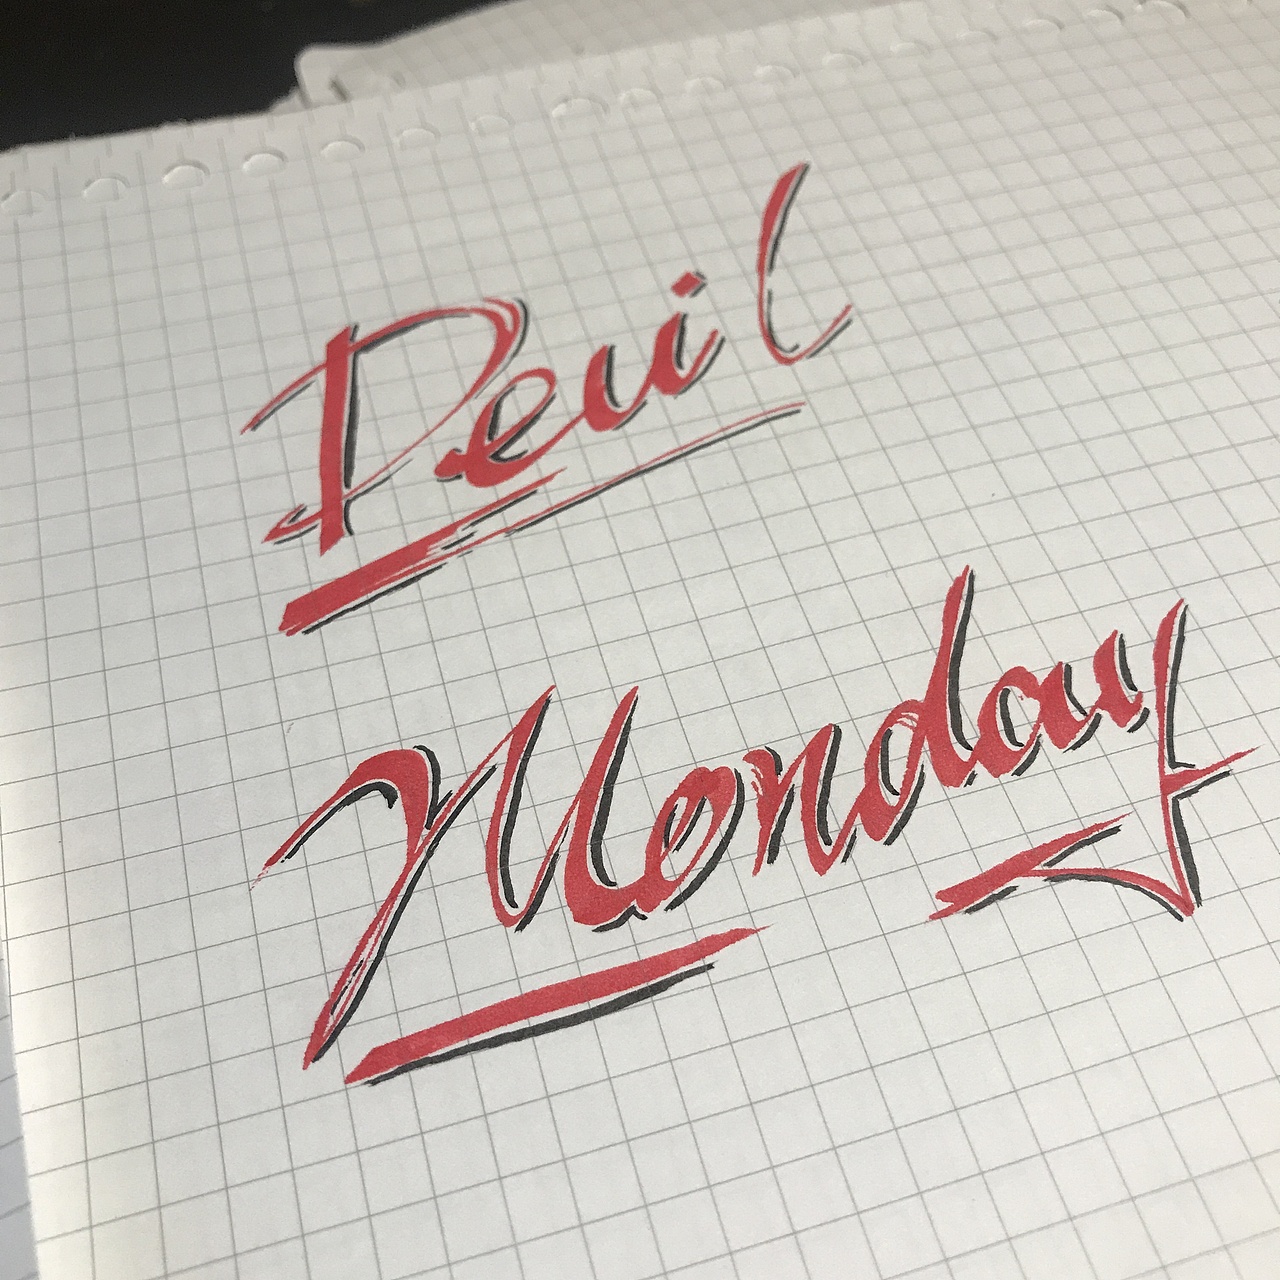 Devil
Monday